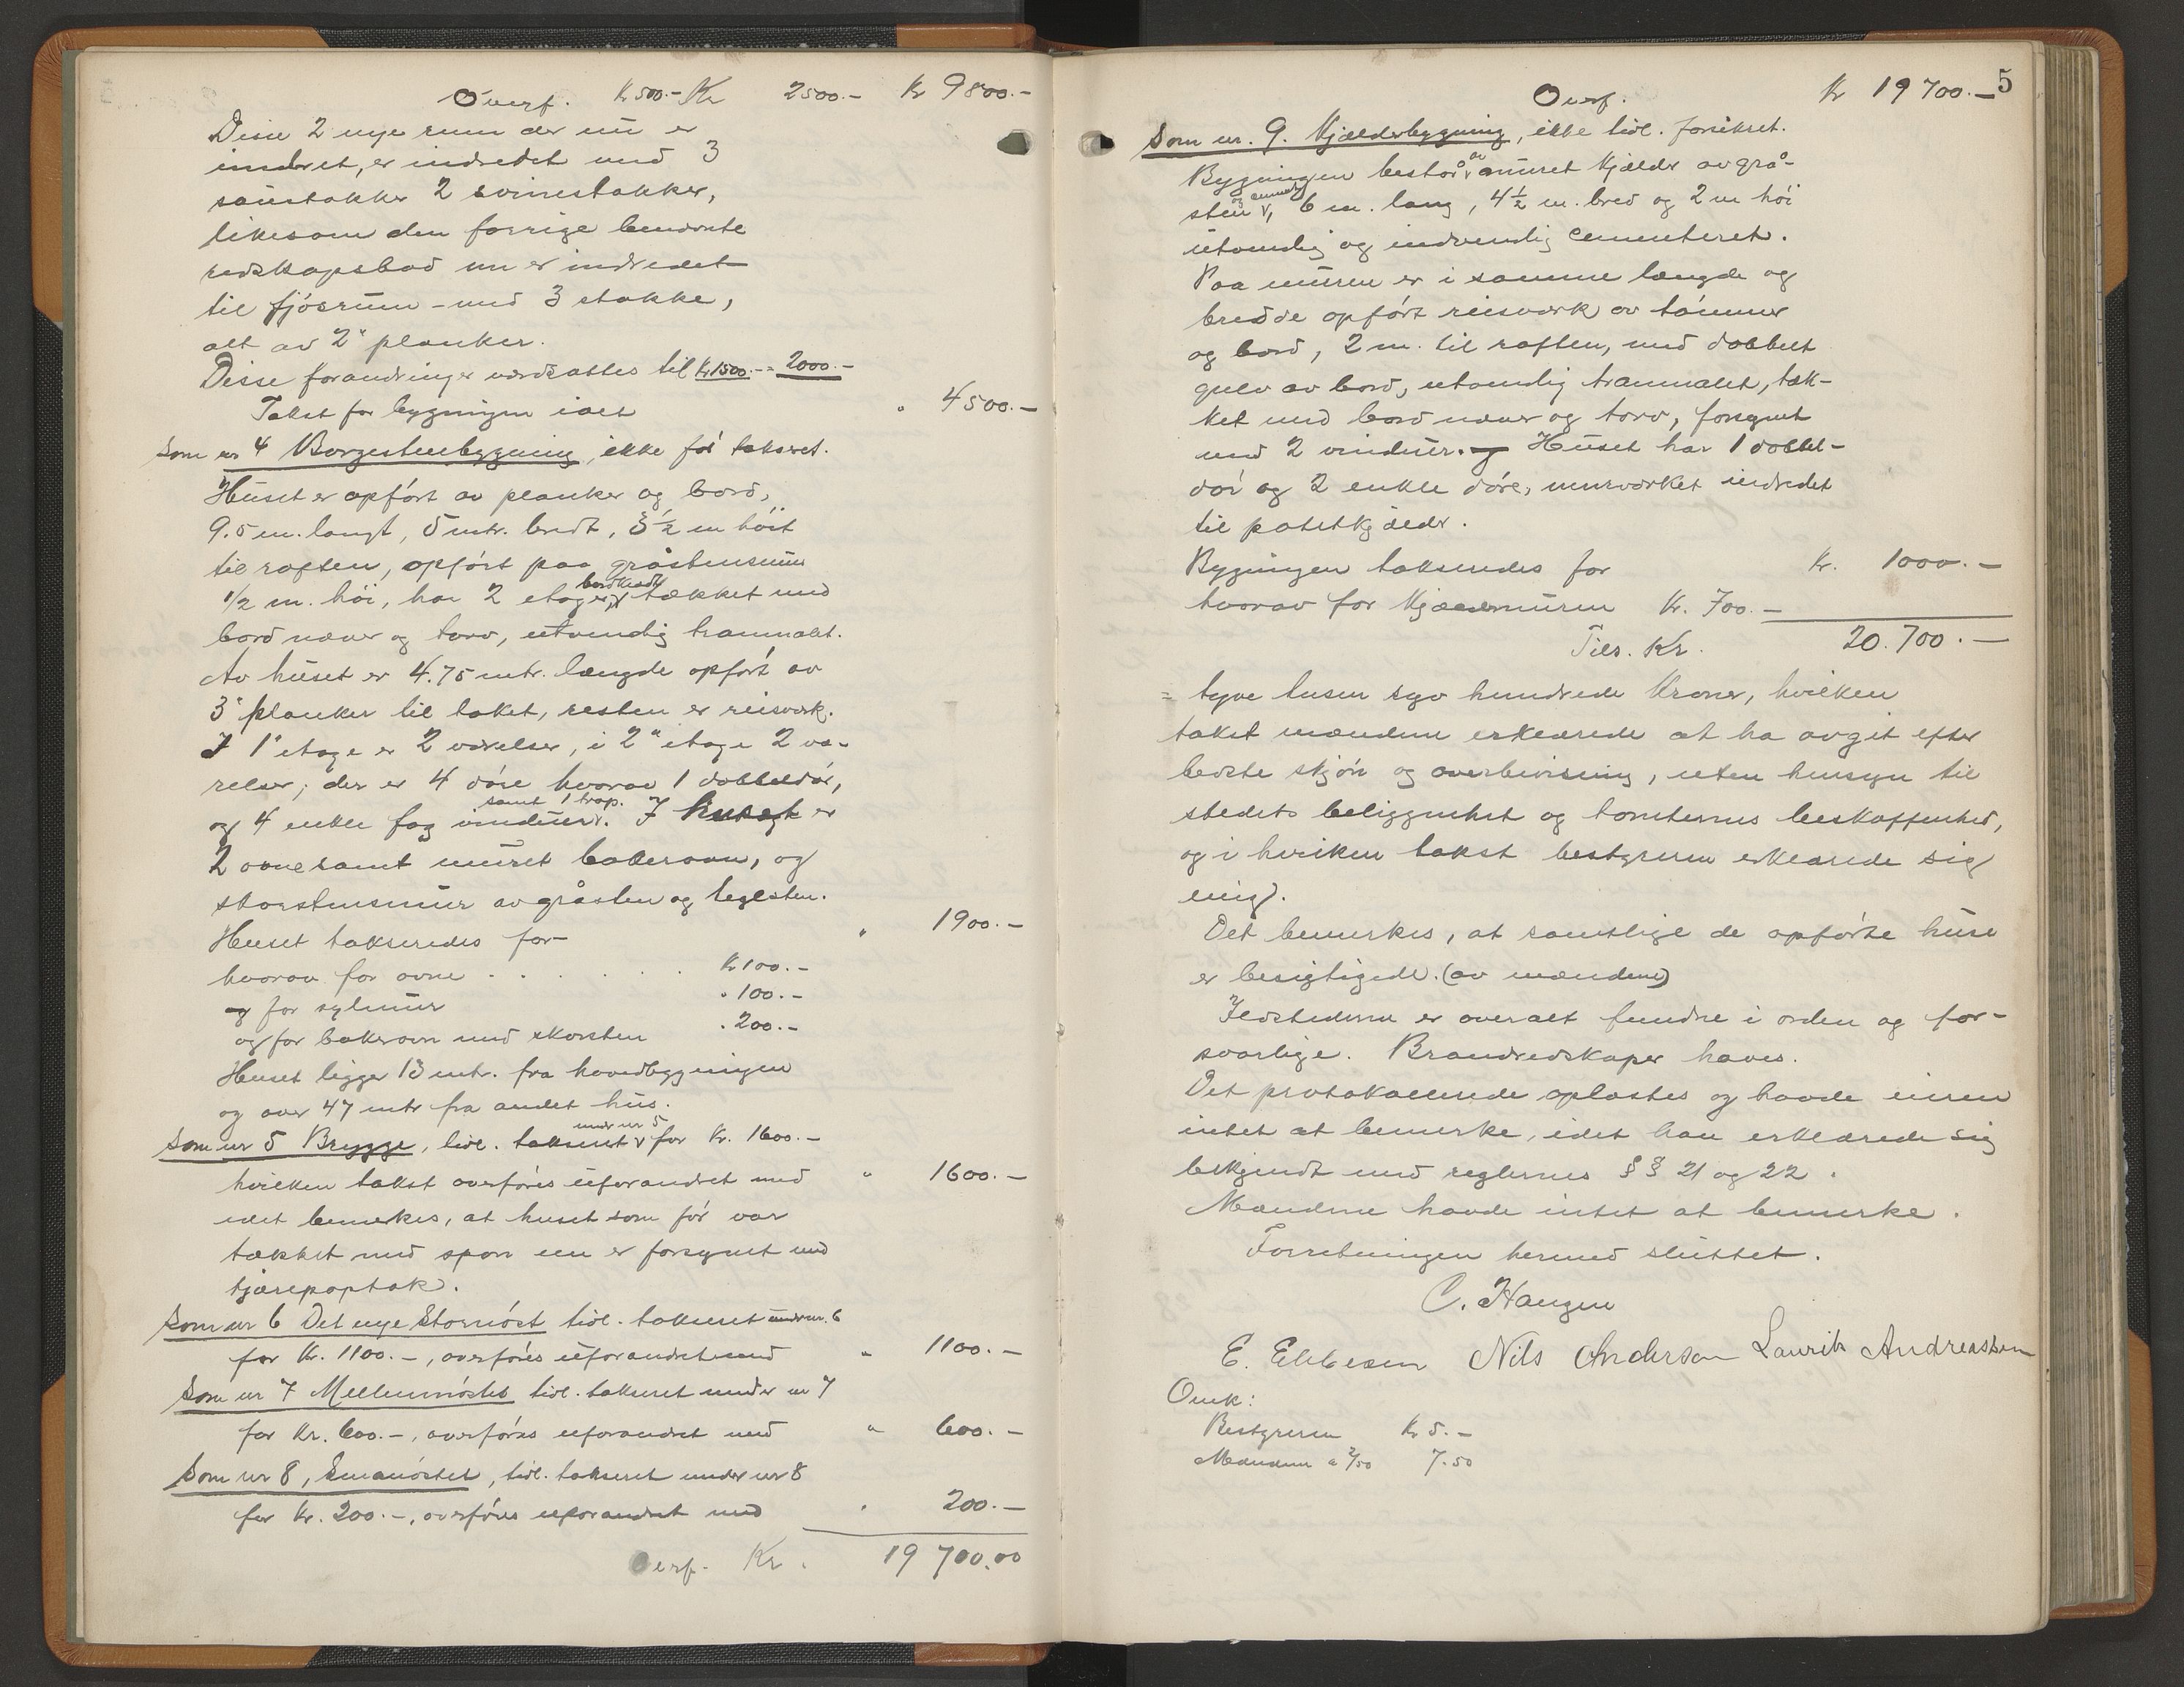 Overf. Kr 500.- Kr 2500.- Kr 9800.-
Disse 2 nye rum der nu er
indret, er indredet med 3
saustakker 2 svinestakker,
likesom den forrige benævnte
redskapsbod nu er indredet
til fjósrum - med 3 stakke,
alt av 2" planker.
Disse forandringer værdsattes til Kr 1500.- = 2000.-
Takst for bygningen ialt " 4500.-
Som nr 4 Borgestuebygning, ikke før taksert.
Huset er opført av planker og bord,
9.5 m. langt, 5 mtr. bredt, 3 1/2 m høit
til raften, opført paa gråstensmur
1/2 m. høi, har 2 etager, bordklædt tækket med
bord næver og torv, utvendig tranmalt.
Av huset er 4.75 mtr. længde opført av
3" planker til taket, resten er reisverk.
I 1" etage er 2 værelser, i 2" etage 2 væ-
relser; der er 4 døre hvorav 1 dobbeldør,
og 4 enkle fag vinduer samt 1 trap. I huset er
2 ovne samt muret bakerovn, og
skorstensmur av gråsten og teglsten.
Huset takseredes for " 1900.-
hvorav for ovne . . . . . . Kr 100.-
og for sylmur " 100.-
og for bakerovn med skorsten " 200.-
Huset ligger 13 mtr. fra hovedbygningen
og over 47 mtr fra andet hus.
Som nr 5 Brygge, tidl. taksert under nr 5 for Kr. 1600.-
hvilken takst overføres uforandret med " 1600.-
idet bemerkes, at huset som før var
tækket med spon nu er forsynet med
tjærepaptak.
Som nr 6 Det nye Stornøst tidl. taksert under nr. 6
for Kr. 1100.-, overføres uforandret med " 1100.-
Som nr 7 Mellemnøstet tidl. takseret under nr 7
for Kr. 600.-, overføres uforandret med " 600.-
Som nr 8, Smanøstet, tidl. takseret under nr 8
for Kr. 200.-, overføres uforandret med " 200.-
Overf. Kr. 19 700.00
5
Overf. Kr 19 700.-
Som nr. 9. Kjælderbygning, ikke tidl. forsikret.
Bygningen består av muret Kjælder av grå-
sten og cement, 6 m. lang, 4 1/2 m. bred og 2 m høi
utvendig og indvendig cementeret.
Paa muren er i samme længde og
bredde opført reisverk av tømmer
og bord, 2 m. til raften, med dobbelt
gulv av bord, utvendig tranmalet, tæk-
ket med bord næver og torv, forsynet
med 2 vinduer. Huset har 1 dobbel-
dør og 2 enkle døre, murværket indredet
til potetkjælder.
Bygningen takseredes for Kr. 1000.-
hvorav for Kjældermuren Kr. 700.-
Tils. Kr. 20.700.-
= tyve tusen syv hundrede Kroner, hvilken
takst mændene erklærede at ha avgit efter
bedste skjøn og overbevisning, uten hensyn til
stedets beliggenhet og tomternes beskaffenhed,
og i hvilken takst bestyreren erklærede sig
enig.
Det bemerkes, at samtlige de opførte huse
er besigtigede. (av mændene)
Ildstederne er overalt fundne i orden og for-
svarlige. Brandredskaper haves.
Det protokollerede oplæstes og havde eieren
intet at bemerke, idet han erklærede sig
bekjendt med reglernes §§ 21 og 22.
Mændene havde intet at bemerke.
Forretningen hermed sluttet.
C. Haugen
E. Ebbesen Nils Anderson Laurits Andreassen
Omk:
Bestyreren Kr 5.-
Mændene a 2/50 7.50